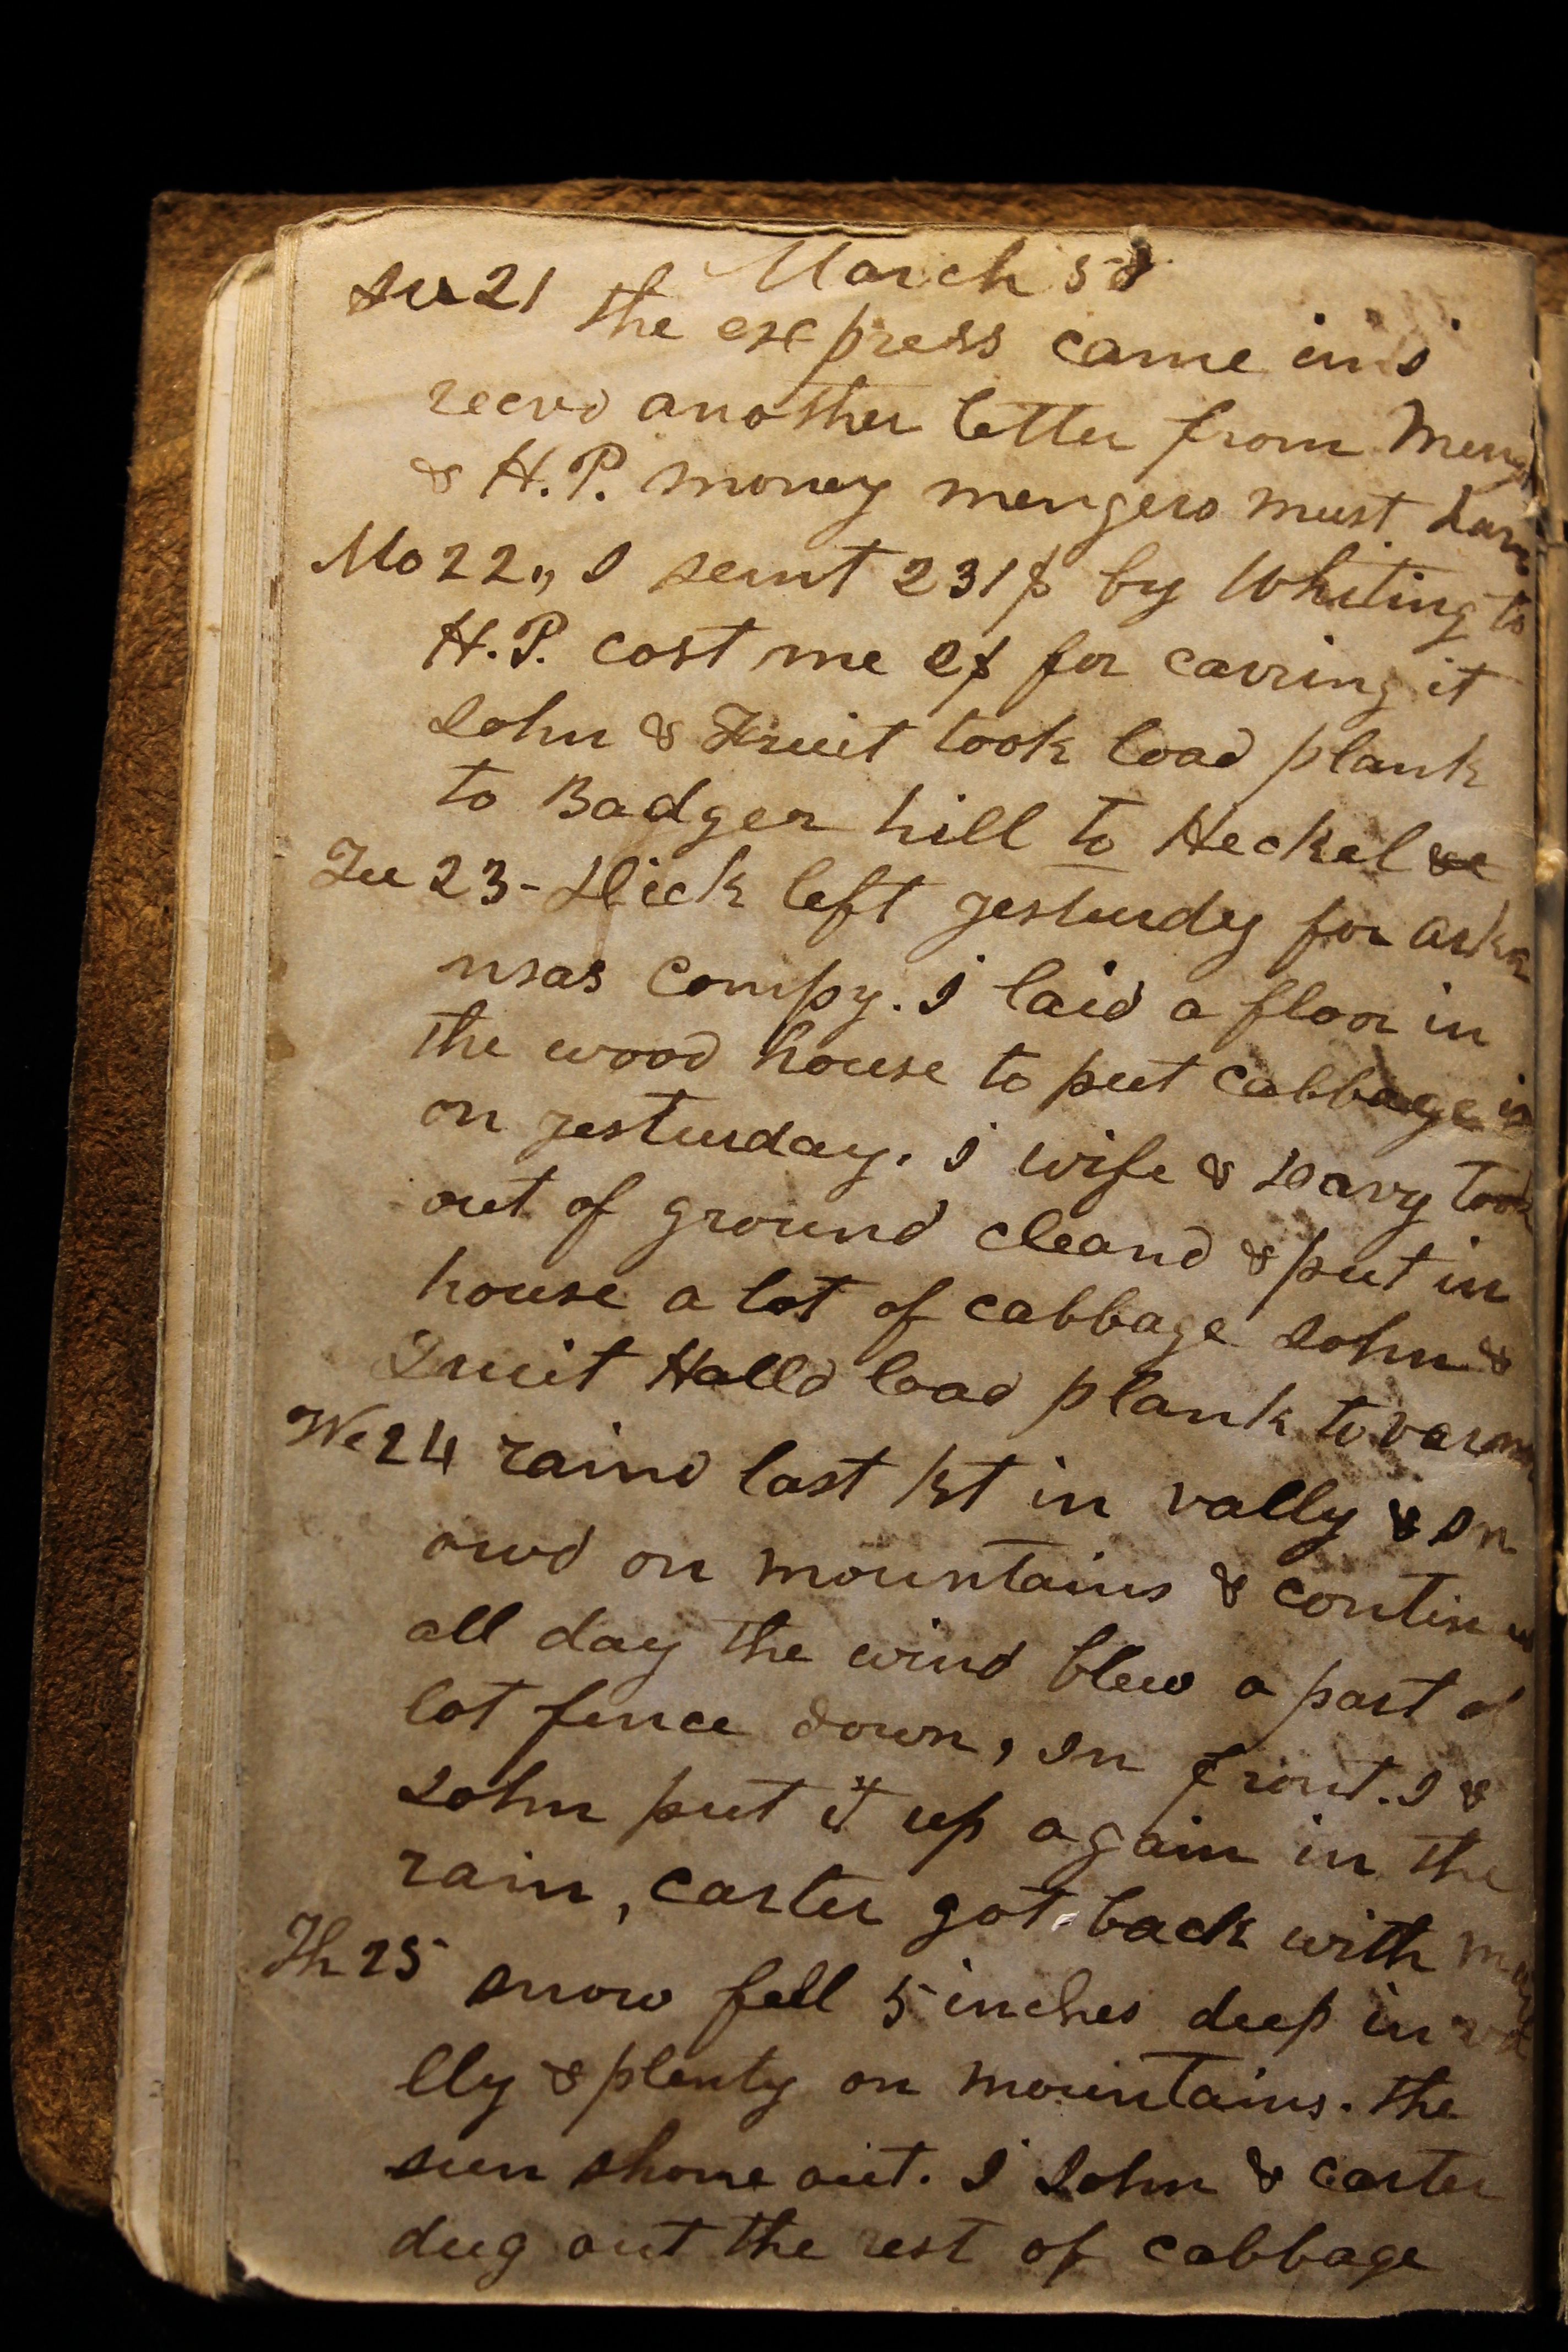 March 58
Su 21 the express came in I
recvd another letter from
& H.P. money mengers must
Mo 22., I sent 231$ by Whiting to
H.P. cost me 2$ for carring it
John & Fruit took load plank
to Badger hill to Heckel
Tu 23- Dick left yesturdy for arka
nsas compy. I laid a floor in
the wood house to put cabbage in
on yesturday. I wife & Davy took
out of ground cleand & put in
house a lot of cabbage John &
Fruit Halld load plank to
We 24 raind last Nt in vally & sn
owd on mountains & contin
all day the wind blew a part of
lot fence down, in front. I &
John put it up again in the
rain, carter got back with
Th 25 snow fell 5 inches deep in va
lly & plenty on mountains. the
sun shone out. I John & carter
dug out the rest of cabbage